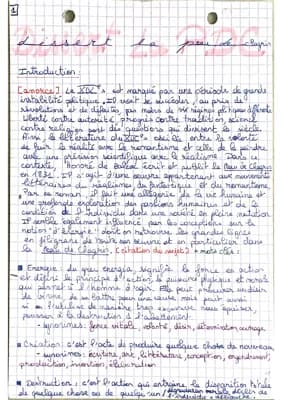 1
Dissert la peau de chagrin
Introduction
[amorce] Le XIXe s est marqué par une période de grande
instabilité politique, il vient de succéder, au prix de
révolutions et de défaites pas moins de régimes politiques différents
Liberté contre autorité, progrès contre tradition, science
contre religion sont des questions qui divisent le siècle.
Ainsi la littérature du XIXe s oscille entre la volonté
de fuir la réalité avec le romantisme et celle de la peindre
avec une précision scientifique avec le réalisme. Dans ce
contexte, Honoré de Balzac écrit et publie La Peau de Chagrin
en 1831. Il s'agit d'une œuvre appartenant aux mouvements
littéraires du réalisme, du fantastique et du romantisme.
Par ce roman, il fait une allégorie de la vie humaine et
une profonde exploration des passions humaines et de la
condition de l'individu dans une société en pleine mutation
Il semble également influencé par les conceptions sur la
notion "d'énergie" dont on retrouve les grandes lignes
en filigrane de toute son œuvre et en particulier dans
La Peau de Chagrin. (citation du sujet) + mots clés :
Energie : du grec energia, signifie la force en action
et définit le principe d'action, la puissance physique et morale
qui permet à l'homme d'agir. Elle peut procurer un désir
de vivre, de se battre pour une cause, mais peut aussi
si on l'utilise de manière trop excessive nous épuiser,
pousser à la destruction et l'abattement.
- synonymes : force vitale, volonté, désir, détermination, courage.
Création : c'est l'acte de produire quelque chose de nouveau,
- synonymes : écriture, art, littérature, conception, engendrement,
production, invention, élaboration
Destruction : c'est l'action qui entraîne la disparition totale
de quelque chose ou de quelqu'un /